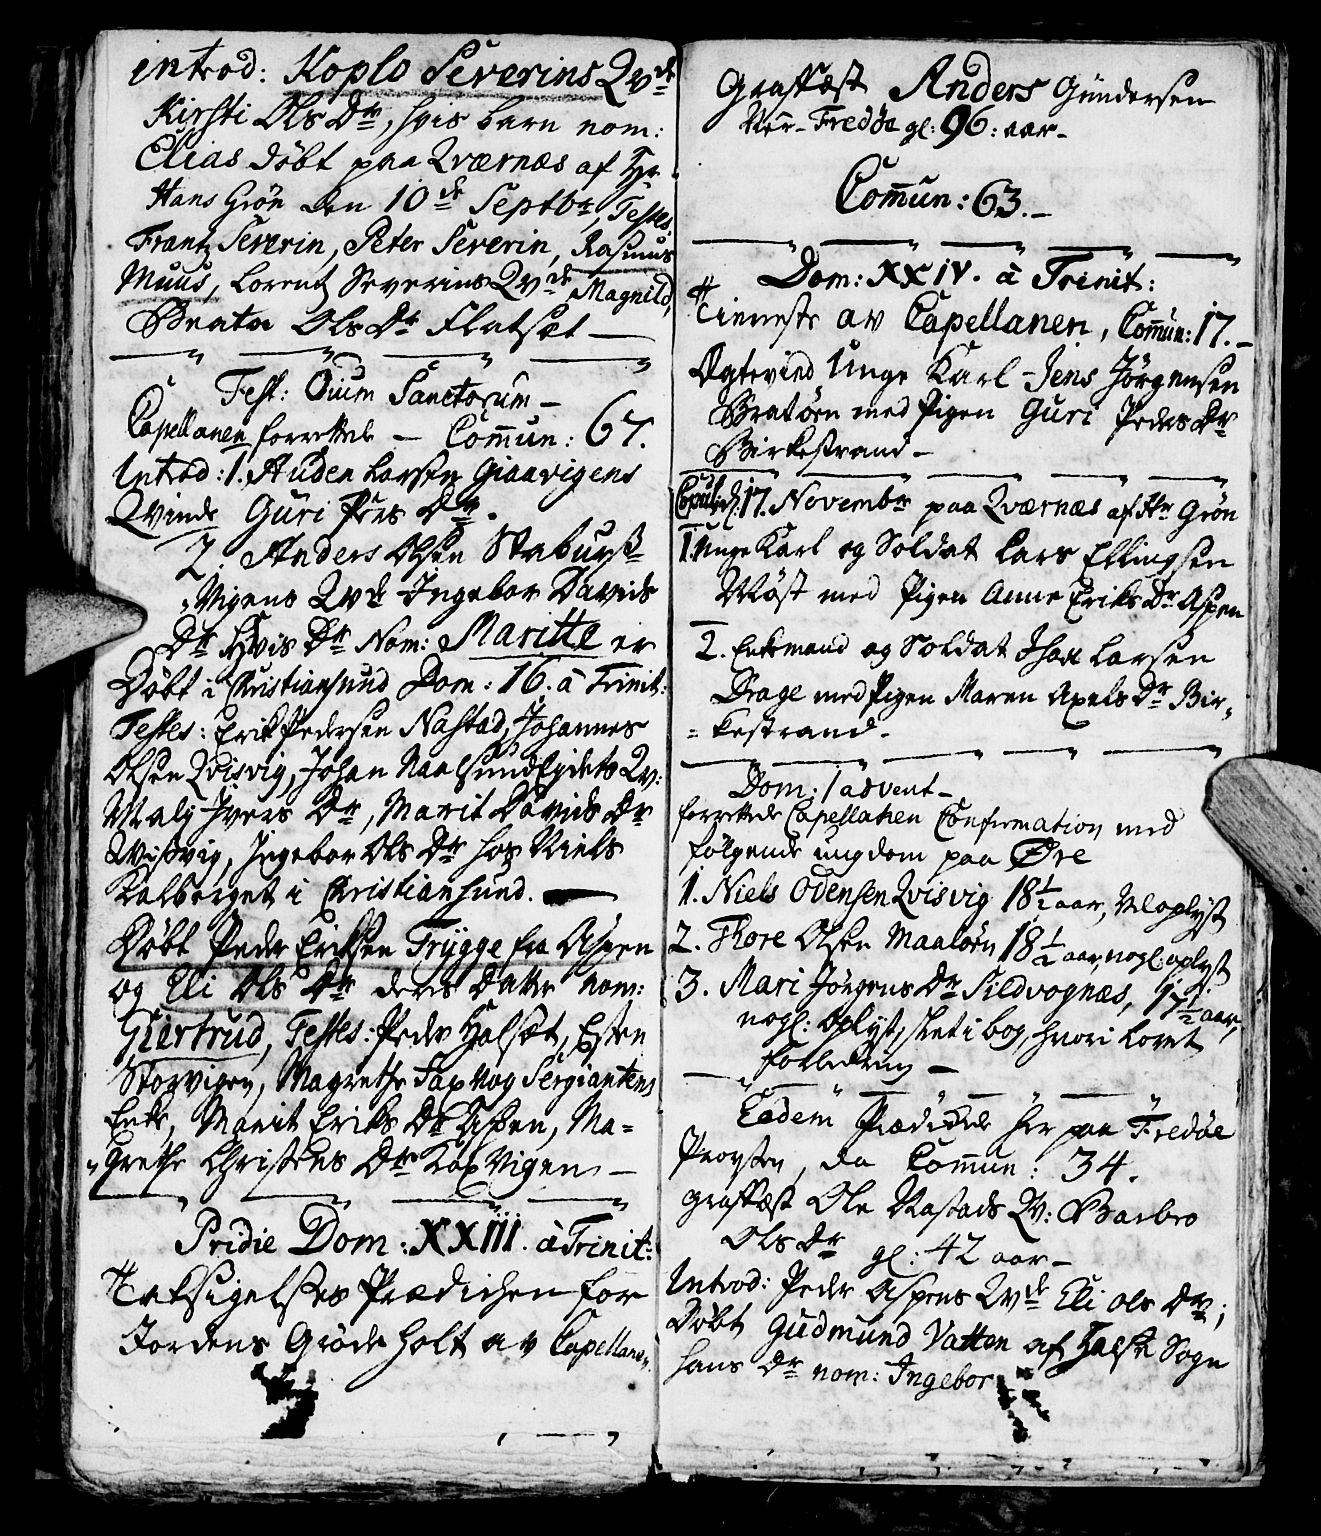 introd: Koplo Severins Qvde
Kirsti Ols Dr, hvis barn nom:
Elias døbt paa Qværnæs af Hr.
Hans Grøn den 10de Septbr, Testes:
Frantz Severin, Peter Severin, Rasmus
Muus, Lorentz Severins Qvde, Magnild,
Beata Ols Dr Flatsæt —
Fest: Oīum Sanctorum —
Capellanen forrettede — Com̄un: 67.
Introd: 1. Auden Larsen Giaavigens
Qvinde Guri Pers Dr.
2. Anders Olsen Staburs-
Vigens Qvde Ingebor Davids
Dr Hvis Dr Nom: Maritte er
Døbt i Christiansund Dom: 16. à Trinit:
Testes: Erik Pedersen Nastad, Johannes
Olsen Qvisvig, Johan Naalsundeydets Qv:
Maly Ivers Dr, Marit Davids Dr
Qvisvig, Ingebor Ols Dr hos Niels
Kalberget i Christiansund. —
Døbt Peder Eriksen Trygge fra Aspen
og Eli Ols Dr deris Datter nom:
Giertrud, Testes: Peder Halsæt, Esten
Storvigen, Magrethe Saxhog Sergiantens
Enke, Marit Eriks Dr Aspen, Ma=
grethe Christens Dr Kaxvigen —
Pridie Dom: XXIII. à Trinit:
Taksigelses Prædichen for
Jordens Grøde holt av Capellanen.
Graffæst Anders Gundersen
Fredøe gl: 96: aar —
Com̄un: 63. —
Dom: XXIV. à Trinit:
Tieneste av Capellanen, Com̄un: 17. —
Ægtevied Unge Karl Jens Jørgensen
Bratøen med Pigen Guri Peders Dr
Birkestrand —
Copul: d. 17. Novembr paa Qværnæs af Hr Grøn
1. Unge Karl og Soldat Lars Ellingsen
Møst med Pigen Anne Eriks Dr Aspen
2. Enkemand og Soldat Larsen
Drage med Pigen Maren Axels Dr Bir=
= kestrand —
Dom: 1 advent —
forrettede Capellanen Confirmation med
følgende ungdom paa Øre
1. Niels Odensen Qvisvig 18½ aar, vel oplyst
2. Thore Olsen Maaløen 18½ aar, nogl: oplyst
3. Mari Jørgens Dr Sildvognæs, 17½ aar,
nogl: oplyst, slet i bog, hvori lovet
forbedring —
Eadem Prædikede her paa Fredøe
Provsten, da Com̄un: 34.
graffæst Ole Rastads Qv: Barbro
Ols Dr gl: 42 aar —
Introd: Peder Aspens Qvde Eli Ols Dr;
Døbt Gudmund Vatten af Halse Sogn
hans Dr nom: Ingebor